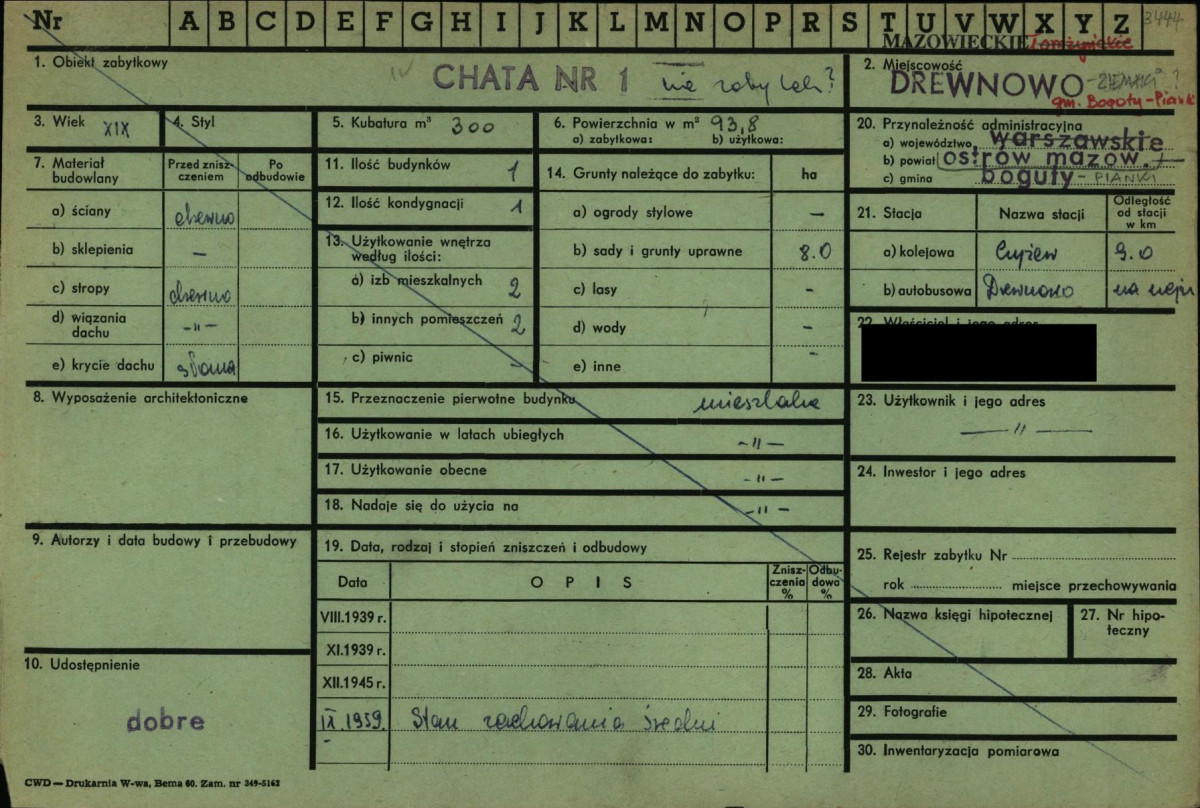 Nr A B C D E F G H I J K L M N O P R S T U V W X Y Z 3444
MAZOWIECKIE Łomżyńskie
1. Obiekt zabytkowy CHATA NR 1 nie zabytek?
2. Miejscowość
DREWNOWO -ZIEMAKI ?
gm. Boguty-Pianki
3. Wiek XIX
4. Styl
5. Kubatura m³ 300
6. Powierzchnia w m² 93,8
a) zabytkowa: b) użytkowa:
7. Materiał budowlany
Przed zniszczeniem
Po odbudowie
a) ściany drewno
b) sklepienia —
c) stropy drewno
d) wiązania dachu -"-
e) krycie dachu słoma
8. Wyposażenie architektoniczne
9. Autorzy i data budowy i przebudowy
10. Udostępnienie
dobre
11. Ilość budynków 1
12. Ilość kondygnacji 1
13. Użytkowanie wnętrza według ilości:
a) izb mieszkalnych 2
b) innych pomieszczeń 2
c) piwnic -
14. Grunty należące do zabytku: ha
a) ogrody stylowe —
b) sady i grunty uprawne 8.0
c) lasy -
d) wody -
e) inne -
15. Przeznaczenie pierwotne budynku mieszkalne
16. Użytkowanie w latach ubiegłych -"-
17. Użytkowanie obecne -"-
18. Nadaje się do użycia na -"-
19. Data, rodzaj i stopień zniszczeń i odbudowy
Data OPIS Zniszczenia % Odbudowa %
VIII.1939 r.
XI.1939 r.
XII.1945 r.
IX.1959. Stan zachowania średni
20. Przynależność administracyjna
a) województwo warszawskie
b) powiat ostrów mazow.
c) gmina boguty - PIANKI
21. Stacja Nazwa stacji Odległość od stacji w km
a) kolejowa Czyżew 9.0
b) autobusowa Drewnowo na miejs
22. Właściciel i jego adres
23. Użytkownik i jego adres
—"—
24. Inwestor i jego adres
25. Rejestr zabytku Nr
rok miejsce przechowywania
26. Nazwa księgi hipotecznej
27. Nr hipoteczny
28. Akta
29. Fotografie
30. Inwentaryzacja pomiarowa
CWD — Drukarnia W-wa, Bema 60. Zam. nr 349-5162